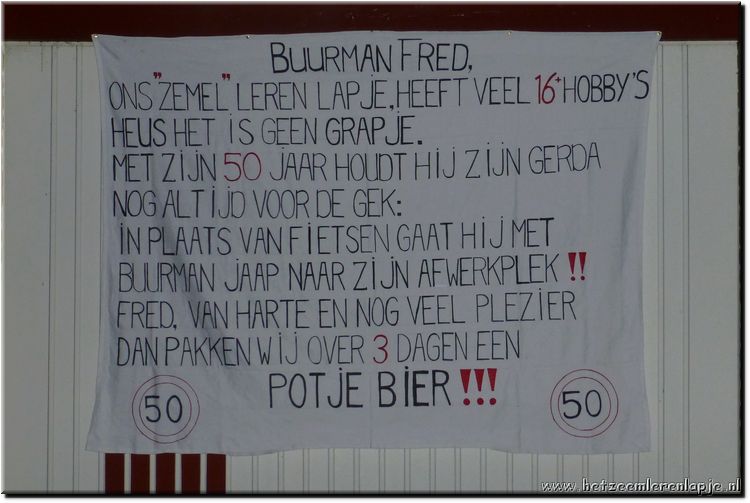 BUURMAN FRED,
ONS "ZEMEL" LEREN LAPJE, HEEFT VEEL 16+ HOBBY'S
HEUS HET IS GEEN GRAPJE.
MET ZIJN 50 JAAR HOUDT HIJ ZIJN GERDA
NOG ALTIJD VOOR DE GEK:
IN PLAATS VAN FIETSEN GAAT HIJ MET
BUURMAN JAAP NAAR ZIJN AFWERKPLEK !!
FRED, VAN HARTE EN NOG VEEL PLEZIER
DAN PAKKEN WIJ OVER 3 DAGEN EEN
POTJE BIER !!!
50
50
www.hetzeemlerenlapje.nl